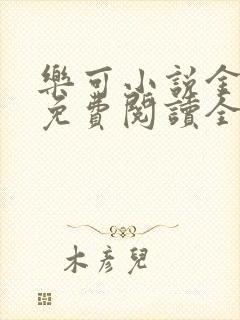 樂可小説全
免費閱讀全
木彥兒